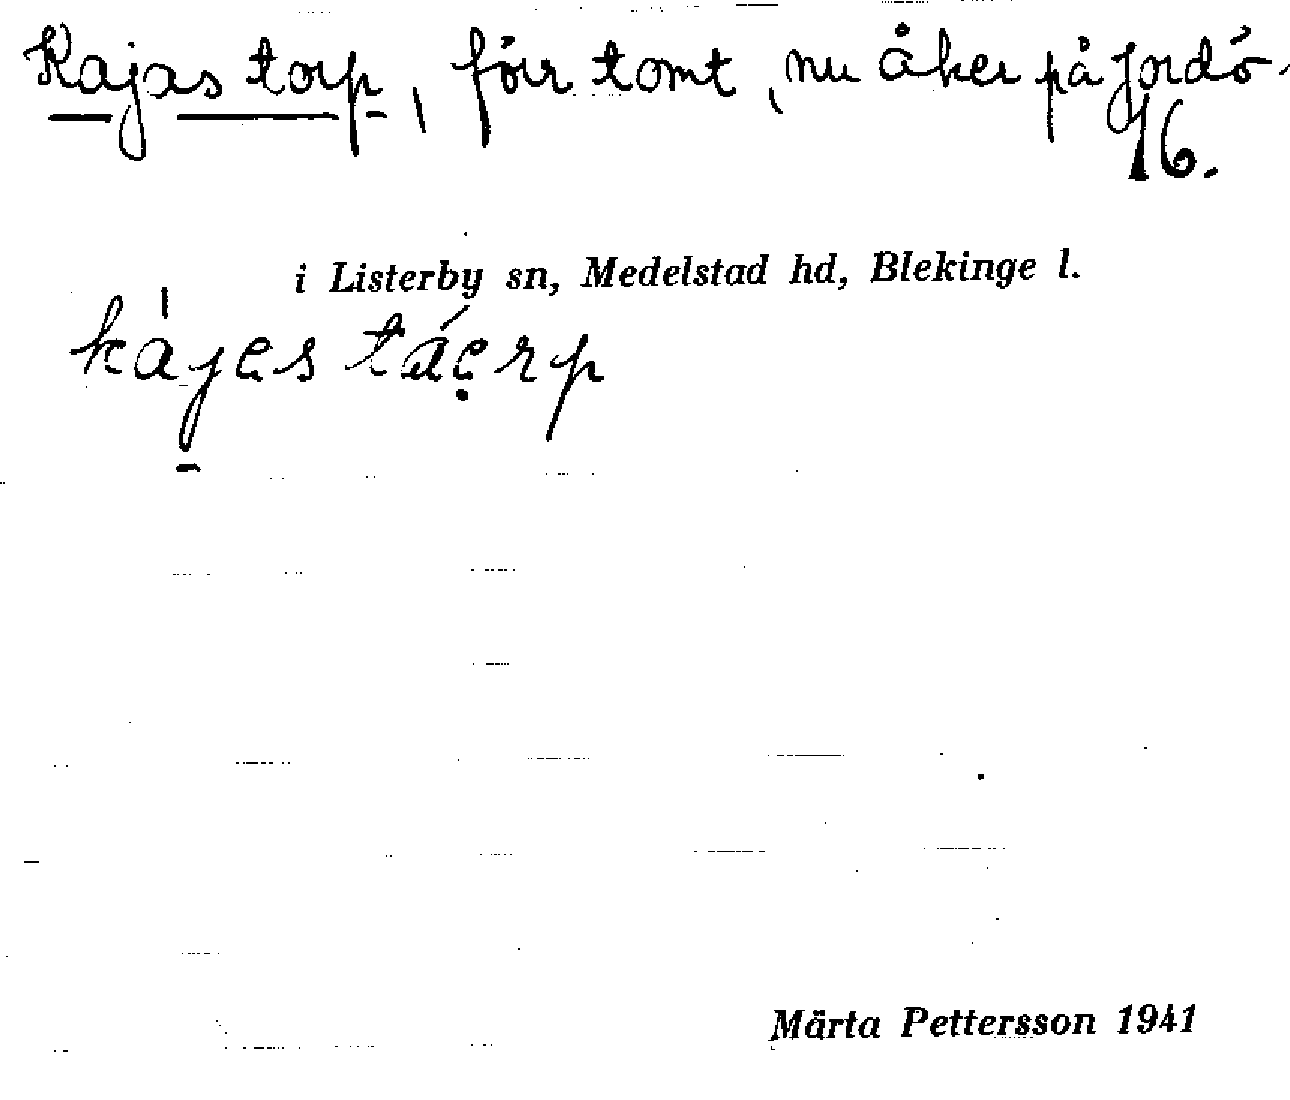 Kajas torp, förr tomt, nu åker på Jordö.
16.
i Listerby sn, Medelstad hd, Blekinge l.
kájes táẹrp
Märta Pettersson 1941